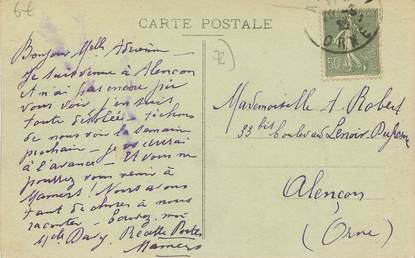 6€
CARTE POSTALE
72
ORNE
50
Bonjour Melle
Je suis venue à Alençon
et n'ai pas encore pu
vous voir, j'en suis
toute désolée - tâchons
de nous voir la semaine
prochaine - je vs dirai
à l'avance. Et vous ne
pourriez vous venir à
Mamers ! Nous avons
tant de choses à nous
raconter - Ecrivez moi
Melle Davy. Recette Postes
Mamers
Mademoiselle A. Robert
33 bis Boulevard Lenoir-Dufresne
Alençon
(Orne)